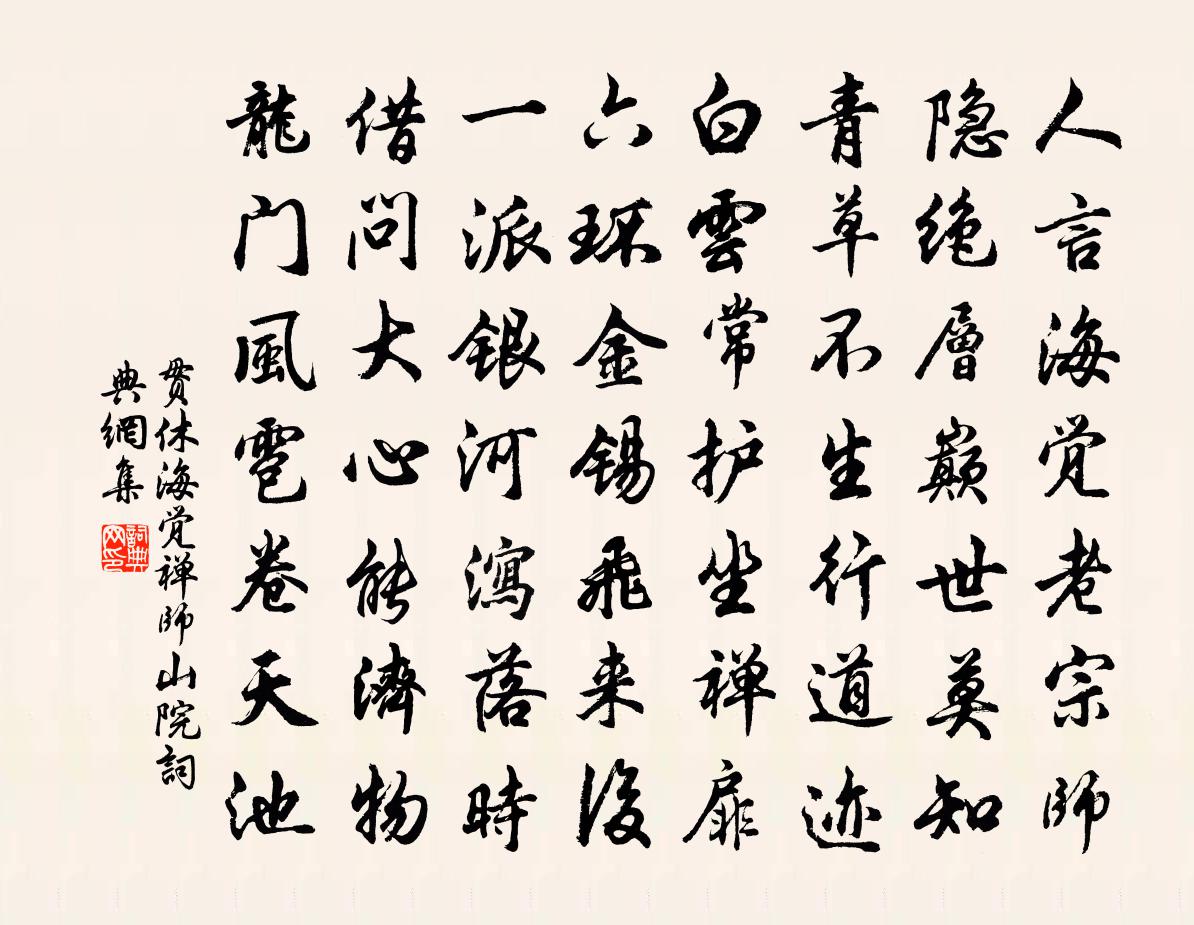 人言海觉老宗师
隐绝層巅世莫知
青草不生行道迹
白雲常护坐禅扉
六环金锡飛来後
一派银河瀉落時
借问大心能濟物
龍门風雹卷天池
贯休海觉禅师山院词
典網集
詞典网印